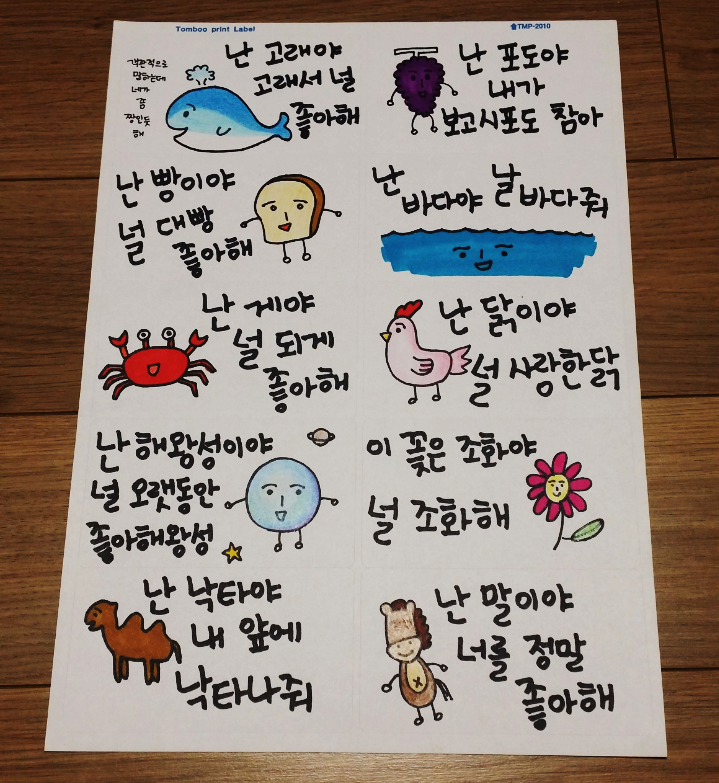 Tomboo print Label
TMP-2010
객관적으로
말하는데
네가
좀
짱인듯
해
난 고래야
고래서 널
좋아해
난 포도야
내가
보고시포도 참아
난 빵이야
널 대빵
좋아해
난
바다야 날
바다줘
난 게야
널 되게
좋아해
난 닭이야
널 사랑한닭
난 해왕성이야
널 오랫동안
좋아해왕성
이 꽃은 조화야
널 조화해
난 낙타야
내 앞에
낙타나줘
난 말이야
너를 정말
좋아해